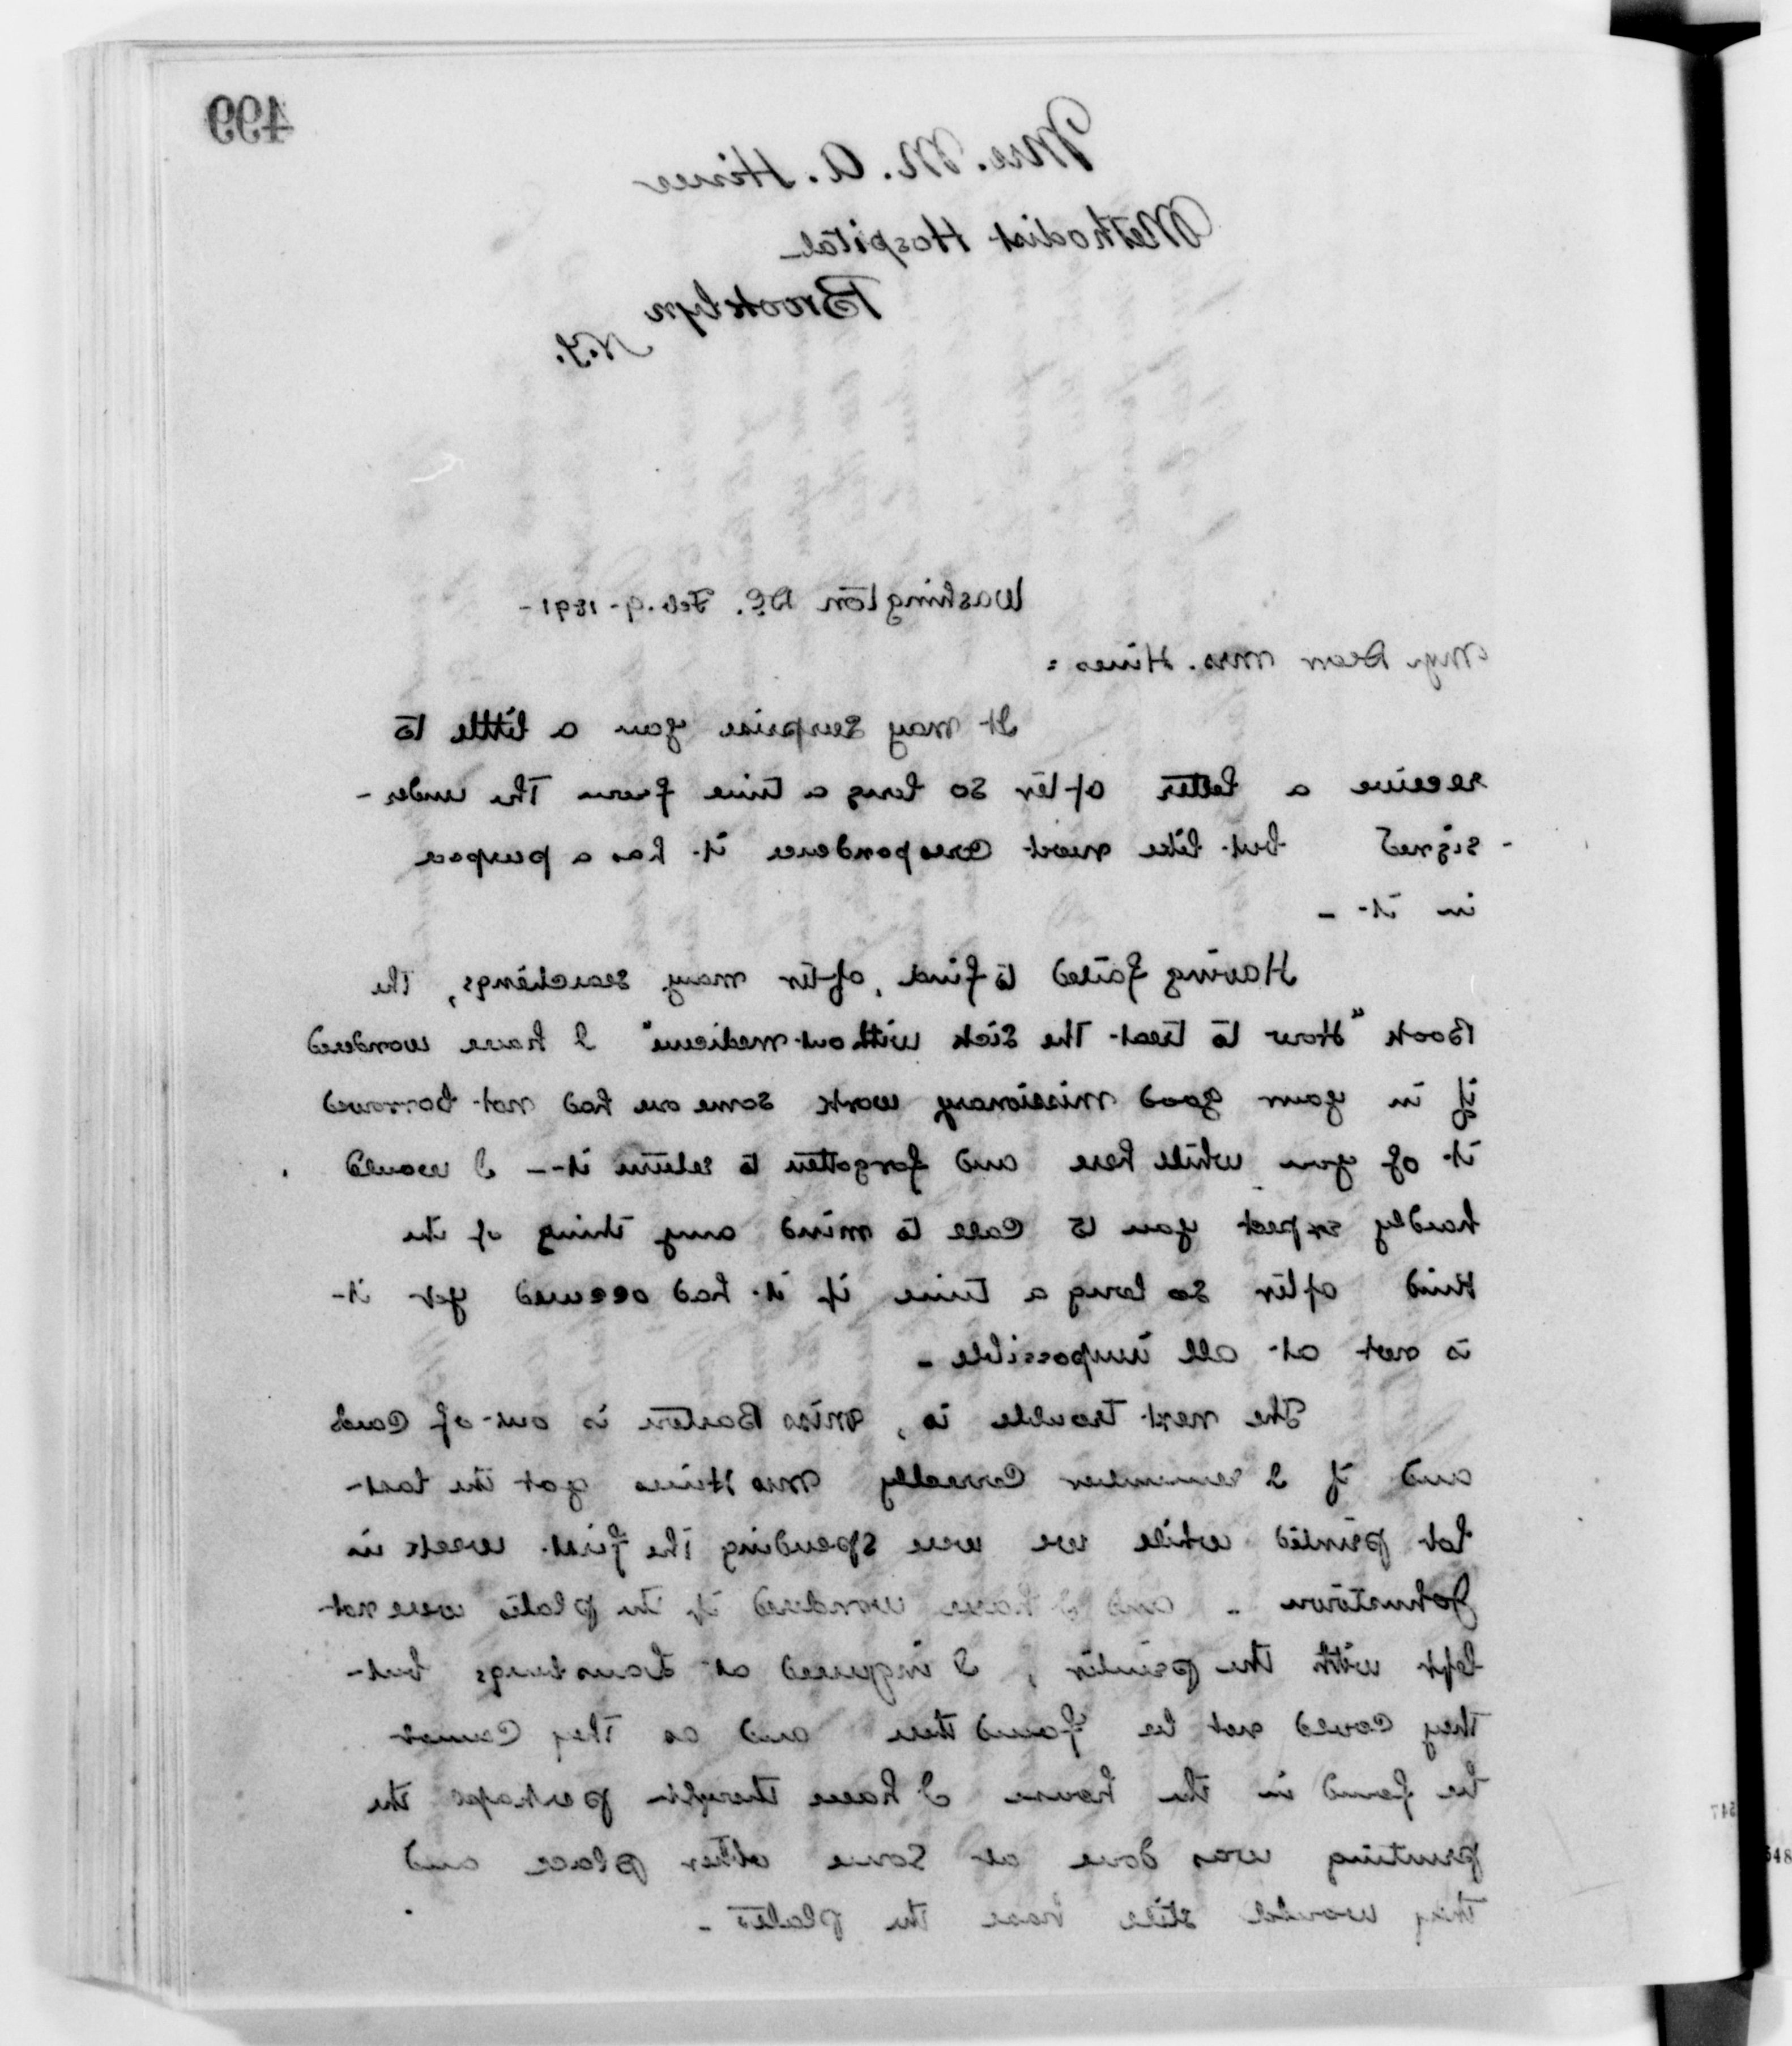 499
Mrs. M. A. Hines
Methodist Hospital
Brooklyn
N.Y.
Washington D.C. Feb. 9 - 1891 -
My Dear Mrs. Hines :
It may surprise you a little to
receive a letter after so long a time from the under -
- signed but like most correspondence it has a purpose
in it -
Having failed to find, after many searchings, the
Book "How to treat the Sick without medicine" I have wondered
if in your good missionary work some one had not borrowed
it of you while here and forgotten to return it - I would
hardly expect you to call to mind any thing of the
kind after so long a time if it had occured yet it
is not at all impossible -
The next trouble is, Miss Barton is out of Cards
and if I remember Correctly Mrs Hines got the last
lot printed while we were spending the first weeks in
Johnstown - and I have wondered if the plates were not
left with the printer, I inquired at but
they could not be found then and as they Cannot
be found in the house I have thought perhaps the
printing was done at some other place and
they would still have the plates -
547
548